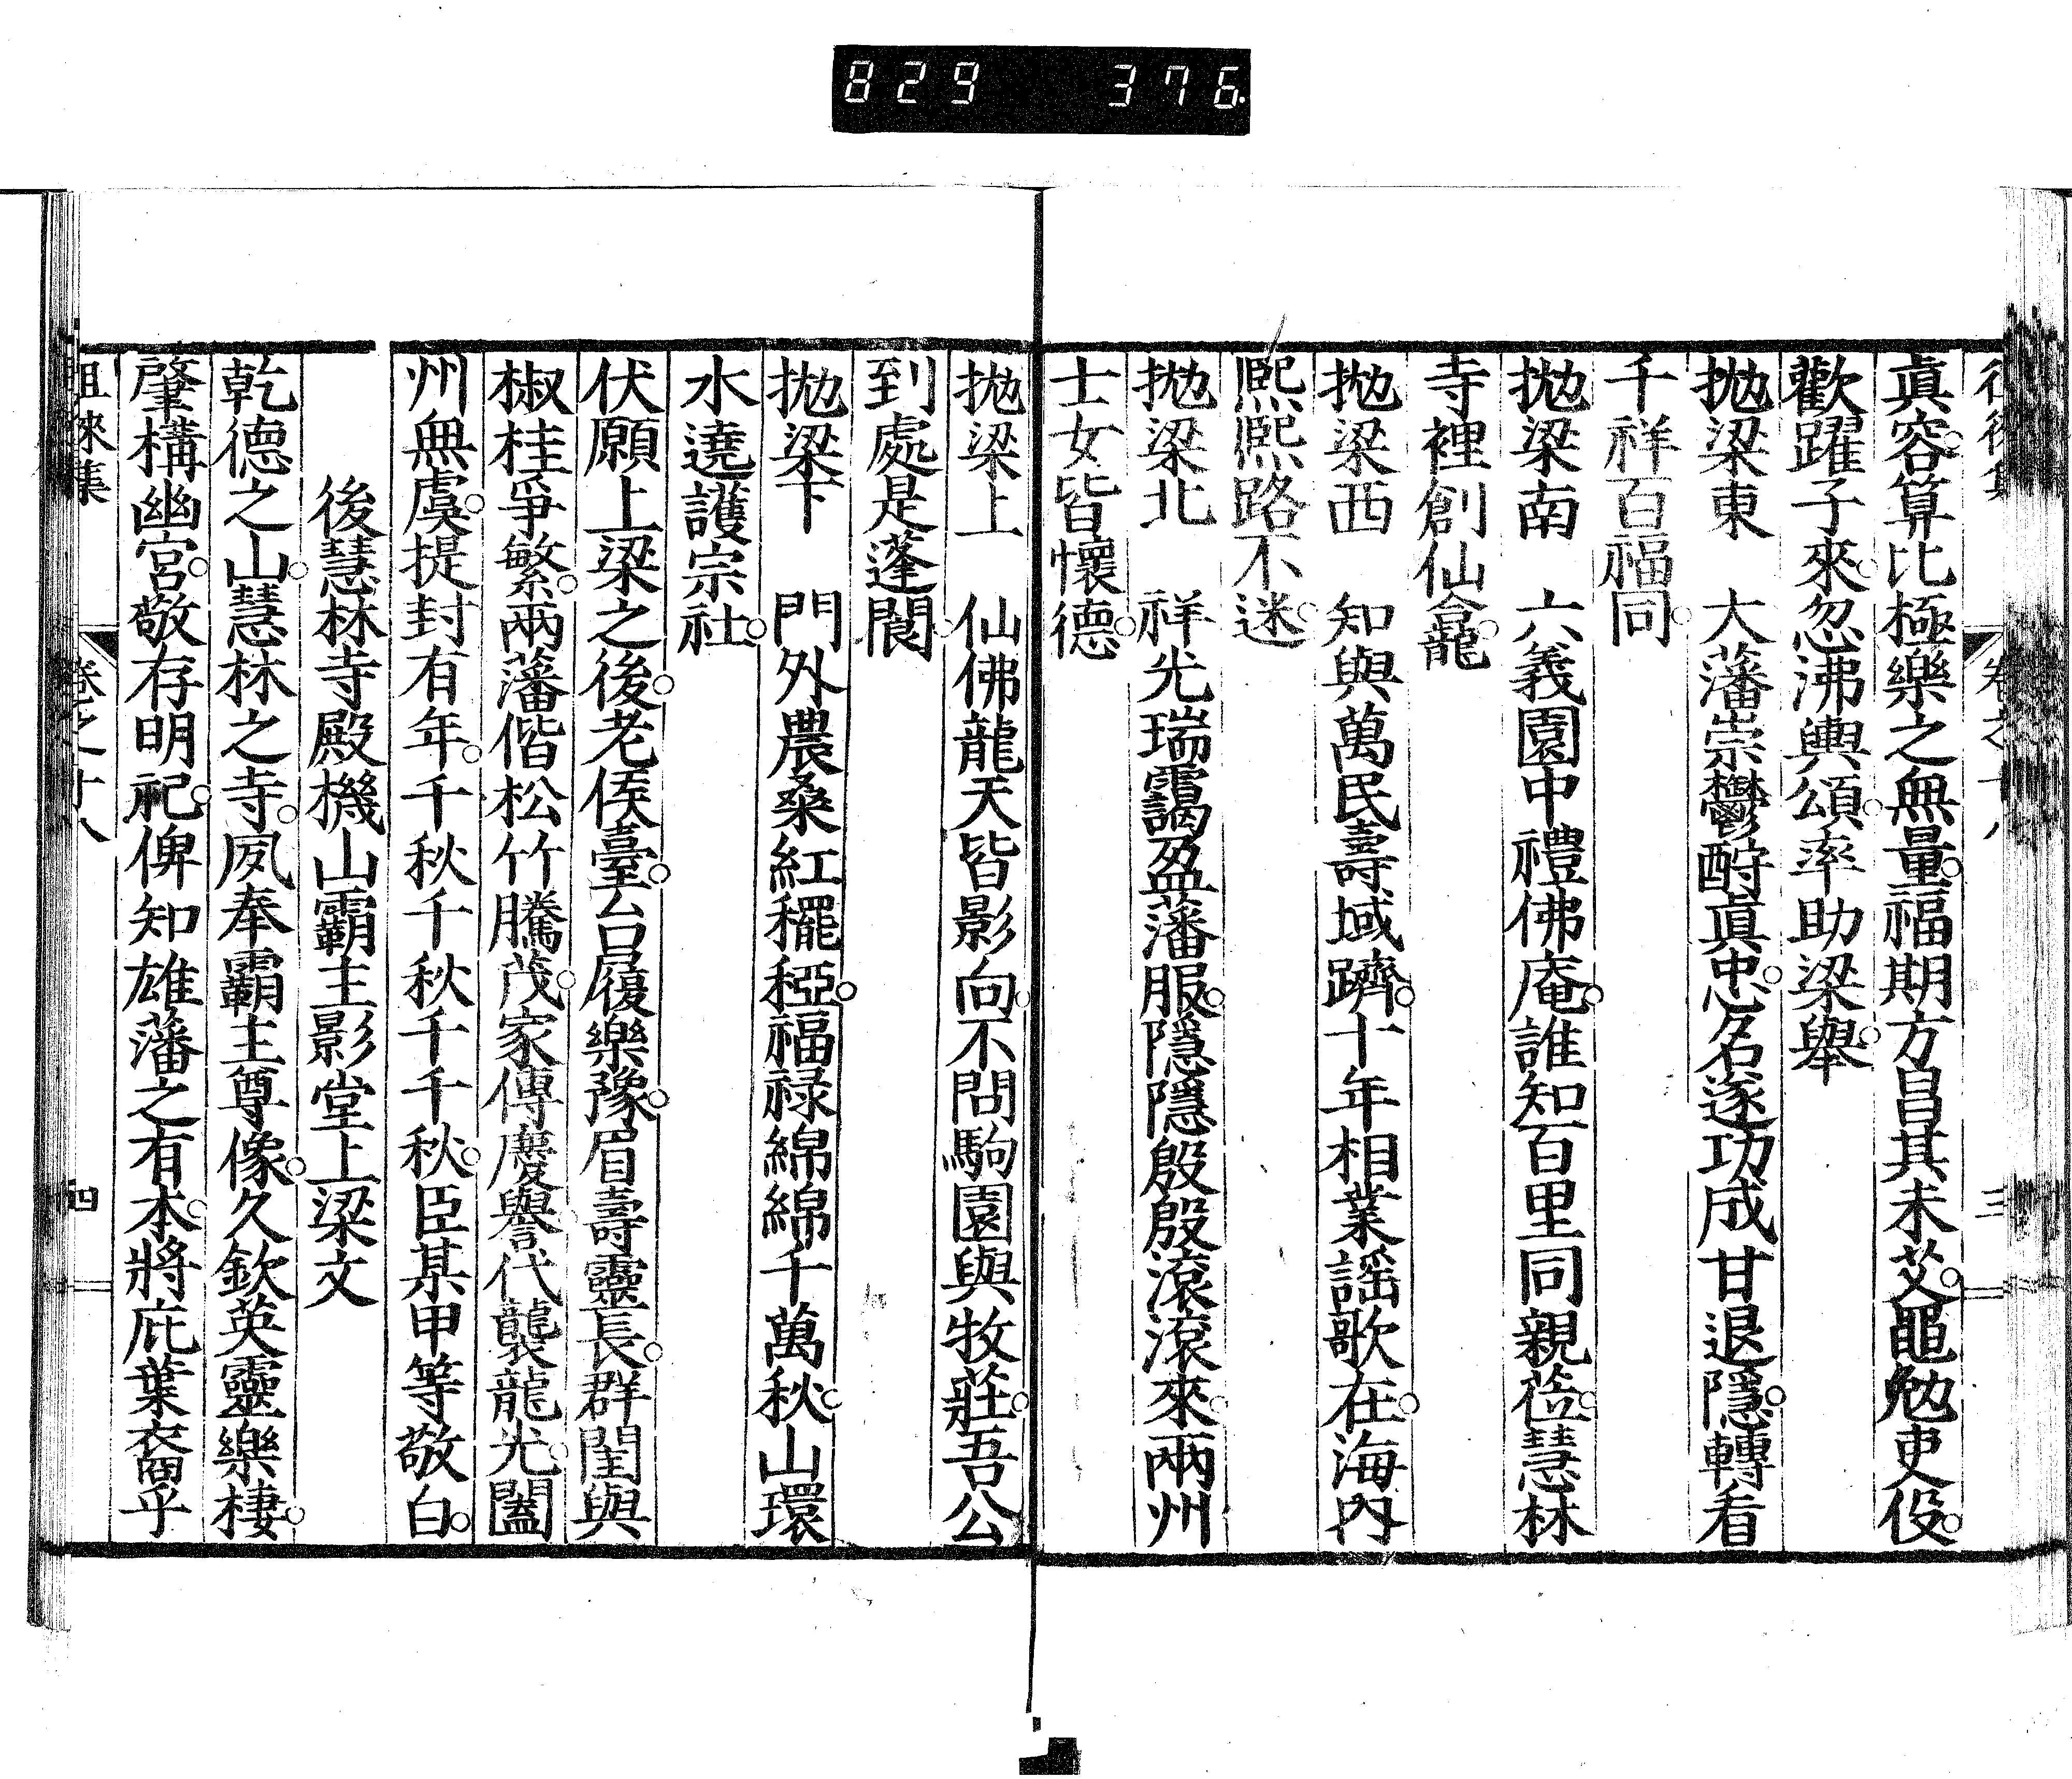 829 376
眞容。算比極樂之無量。福期方昌其未艾。黽勉吏役。
歡躍子來。忽沸輿頌。率助梁舉。
拋梁東 大藩崇鬱酹眞忠。名遂功成甘退隱。轉看
千祥百福同。
拋梁南 六義園中禮佛庵。誰知百里同親蒞。慧林
寺裡創仙龕。
拋梁西 知與萬民壽域躋。十年相業謡歌在。海內
熙熙路不迷。
拋梁北 祥光瑞靄盈藩服。隱隱殷殷滾滾來。兩州
士女皆懷德。
拋梁上 仙佛龍天皆影向。不問駒園與牧莊。吾公
到處是蓬閬。
拋梁下 門外農桑紅䆉稏。福禄綿綿千萬秋。山環
水遶護宗社。
伏願上梁之後。老侯臺。台履樂豫。眉壽靈長。群閨與
椒桂爭繁。兩藩偕松竹騰茂。家傳慶譽。代襲龍光。闔
州無虞。提封有年。千秋千秋千千秋。臣某甲等敬白。
後慧林寺殿機山霸主影堂上梁文
乾德之山。慧林之寺。夙奉霸主尊像。久欽英靈樂棲。
肇構幽宮。敬存明祀。俾知雄藩之有本。將庇葉裔乎
徂徠集 卷之十八 四